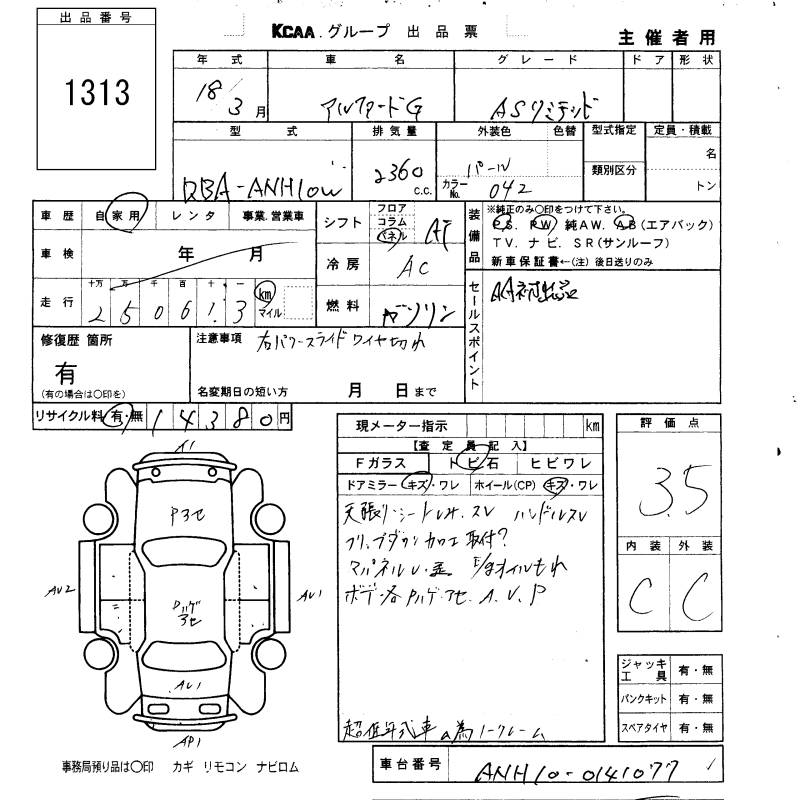 出品番号
1313
KCAA.グループ 出品票
主催者用
年式 車名 グレード ドア 形状
18/3月 アルファードG ASリミテッド
型式 排気量 外装色 色替 型式指定 定員・積載
類別区分
DBA-ANH10W 2360c.c. パール カラーNo. 042 名 トン
車歴 自家用 レンタ 事業.営業車
シフト フロア コラム パネル AT
装備品 ※純正のみ○印をつけて下さい。
P.S. P.W 純A.W. A.B(エアバック)
T.V. ナビ. S R(サンルーフ)
新車保証書←(注) 後日送りのみ
車検 年 月
冷房 AC
走行 十万 万 千 百 十 一 km マイル
2 5 0 6 1. 3
燃料 ガソリン
セールスポイント
修復歴 箇所
有
(有の場合は○印を)
注意事項 右パワースライドワイヤ切れ
名変期日の短い方 月 日まで
リサイクル料 有・無 14380円
現メーター指示 km
【査定員記入】
Fガラス トビ石 ヒビワレ
ドアミラー キズ・ワレ ホイール(CP) キズ・ワレ
天張り・シート スレ ハンドルスレ
フリップダウン 取付?
オイルもれ
A.U.P
評価点
3.5
内装 外装
C C
A1
P3セ
AU2
AU1
AU1
AP1
ジャッキ 工具 有・無
パンクキット 有・無
スペアタイヤ 有・無
超低年式車の為ノークレーム
車台番号 ANH10-0141077
事務局預り品は○印 カギ リモコン ナビロム